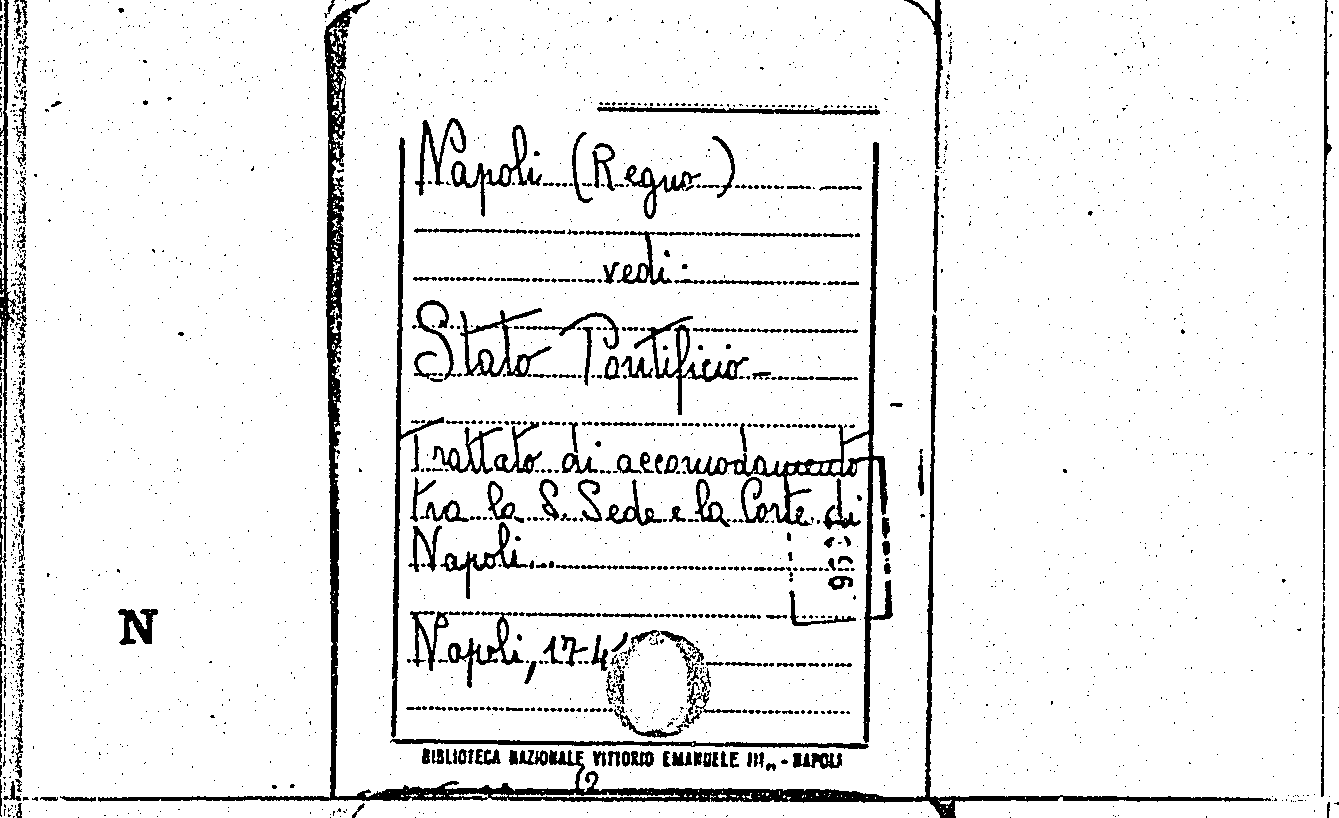 Napoli (Regno)
vedi:
Stato Pontificio-
Trattato di accomodamento
tra la S. Sede e la Corte di
Napoli...
N
Napoli, 174
BIBLIOTECA NAZIONALE VITTORIO EMANUELE III„ - NAPOLI